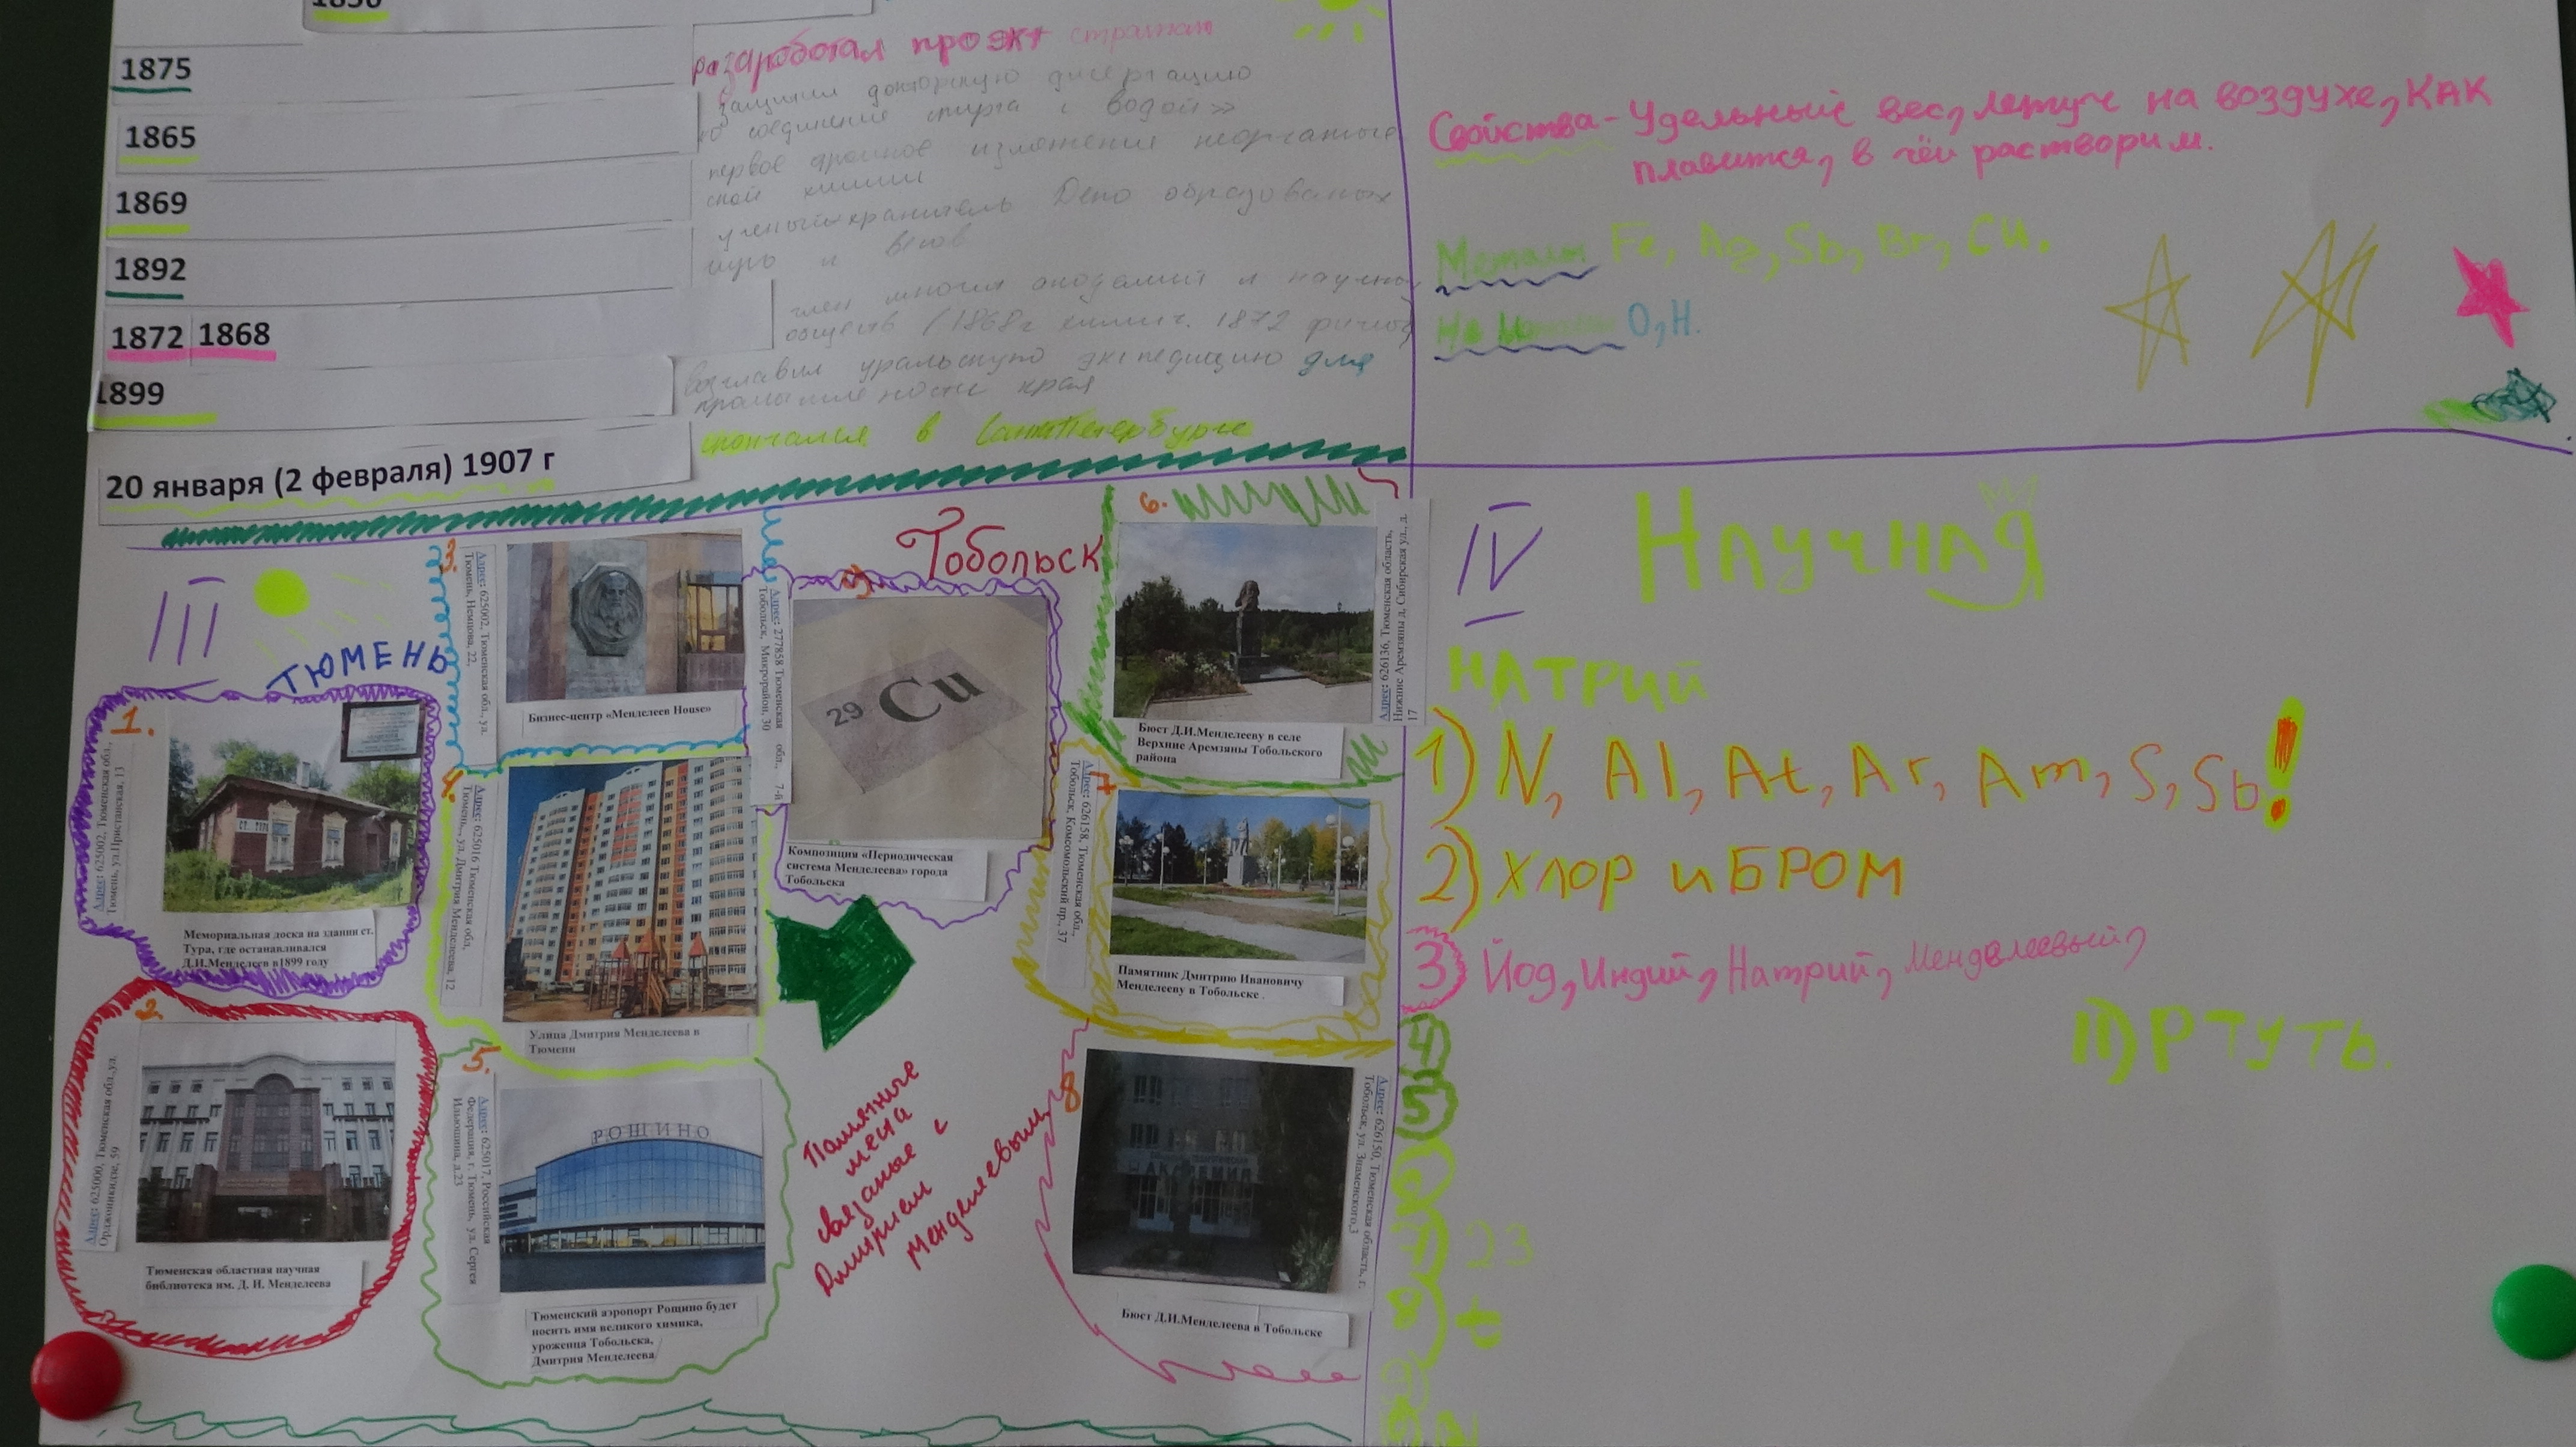 1875
разработал проэкт стратом
защитил докторскую дисертацию
1865
соединение спирта с водой»
1869
первое дройное изложения неорганиче
ской химии
1892
ученый хранитель Депо образованых
гирь и весов
1872 1868
член многих академий и научных
обществ (1868г химич. 1872 физич)
1899
возглавил уральскую экспедицию для
промышлености края
20 января (2 февраля) 1907 г
скончался в СанктПетербурге
Свойства- Удельный вес, летуч на воздухе, КАК
плавится, в чём растворим.
Металы Fe, Ag, Sb, Br, Cu.
Не O, H.
III
ТЮМЕНЬ
1.
Адрес: 625002, Тюменская обл.,
Тюмень, ул.Пристанская, 13
СТ. ТУРА
Мемориальная доска на здании ст.
Тура, где останавливался
Д.И.Менделеев в1899 году
2.
Адрес: 625000, Тюменская обл.,ул.
Орджоникидзе, 59
Тюменская областная научная
библиотека им. Д. И. Менделеева
3.
Адрес: 625002, Тюменская обл., ул.
Тюмень, Немцова, 22,
Бизнес-центр «Менделеев House»
4.
Адрес: 625016 Тюменская обл.
Тюмень,, ул. Дмитрия Менделеева, 12
Улица Дмитрия Менделеева в
Тюмени
5.
Адрес: 625017, Российская
Федерация, г. Тюмень, ул. Сергея
Ильюшина, д.23
РОЩИНО
Тюменский аэропорт Рощино будет
носить имя великого химика,
уроженца Тобольска,
Дмитрия Менделеева
Тобольск
Адрес: 277858 Тюменская обл., 7-й
Тобольск, Микрорайон, 30
29 Cu
Композиция «Периодическая
система Менделеева» города
Тобольска
Памятные
места
связаные с
Дмитрием
Менделеевым
6.
Адрес: 626136, Тюменская область,
Нижние Аремзяны д, Сибирская ул., д.
17
Бюст Д.И.Менделееву в селе
Верхние Аремзяны Тобольского
района
7
Адрес: 626158, Тюменская обл.,
Тобольск, Комсомольский пр., 37
Памятник Дмитрию Ивановичу
Менделееву в Тобольске .
8
Адрес: 626150, Тюменская область, г.
Тобольск, ул. Знаменского,3
Бюст Д.И.Менделеева в Тобольске
IV
Научная
НАТРИЙ
1) N, Al, At, Ar, Am, S, Sb!
2) ХЛОР и БРОМ
3) Йод, Индий, Натрий, Менделеевый,
4
5
11) РТУТЬ.
6
7
23
8
t
9